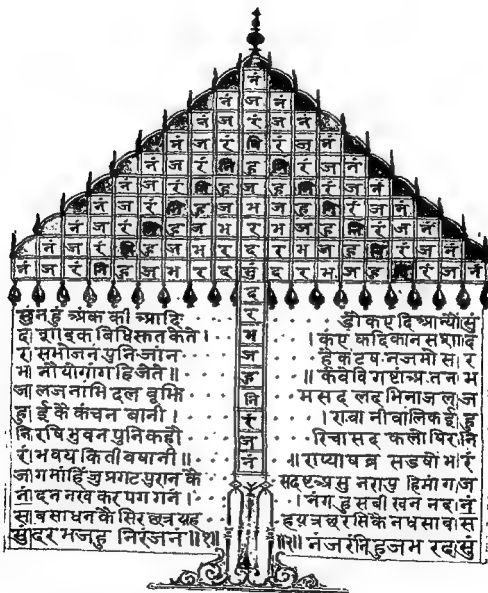 नं
नं ज नं
नं ज रं ज नं
नं ज रं नि रं ज नं
नं ज रं नि हु नि रं ज नं
नं ज रं नि हु ज हु नि रं ज नं
नं ज रं नि हु ज भ ज हु नि रं ज नं
नं ज रं नि हु ज भ र भ ज हु नि रं ज नं
नं ज रं नि हु ज भ र द र भ ज हु नि रं ज नं
नं ज रं नि हु ज भ र द सुं द र भ ज हु नि रं ज नं
द
र
भ
ज
हु
नि
रं
ज
नं
सुनहुं अंक की आदि
द बिधिसत केते ।
र सभोजन पुनि जान
भ नौ योगांग हि जेते ॥
जा लजनाभि दल वूभि
हु ई कै कंचन बानी ।
नि रषि भुवन पुनि कहौ
रं भवय किती वषानी ॥
ज ग मांहिं जु प्रगट पुरान कै
नं दन नख कर पग गनं ।
सा व साधन कै सिर छत्र यह
सुं दर भजहु निरंजन ॥१॥
डी क ए दि आन्यौ सुं
। कं ए कदिकान द
है कटष नजमो स र
॥ कंवेवि ग तन भ
मसद लद भिनाज ल ज
। रा वा नी बालिक ई हु
रिचा सद फलौ षिर नि
रं
प्रसु नरापु हिमांग ज
। नंगहु सबी खन नद नं
नधसाव स
॥२॥ नंजरंनिहुजभरद सुं